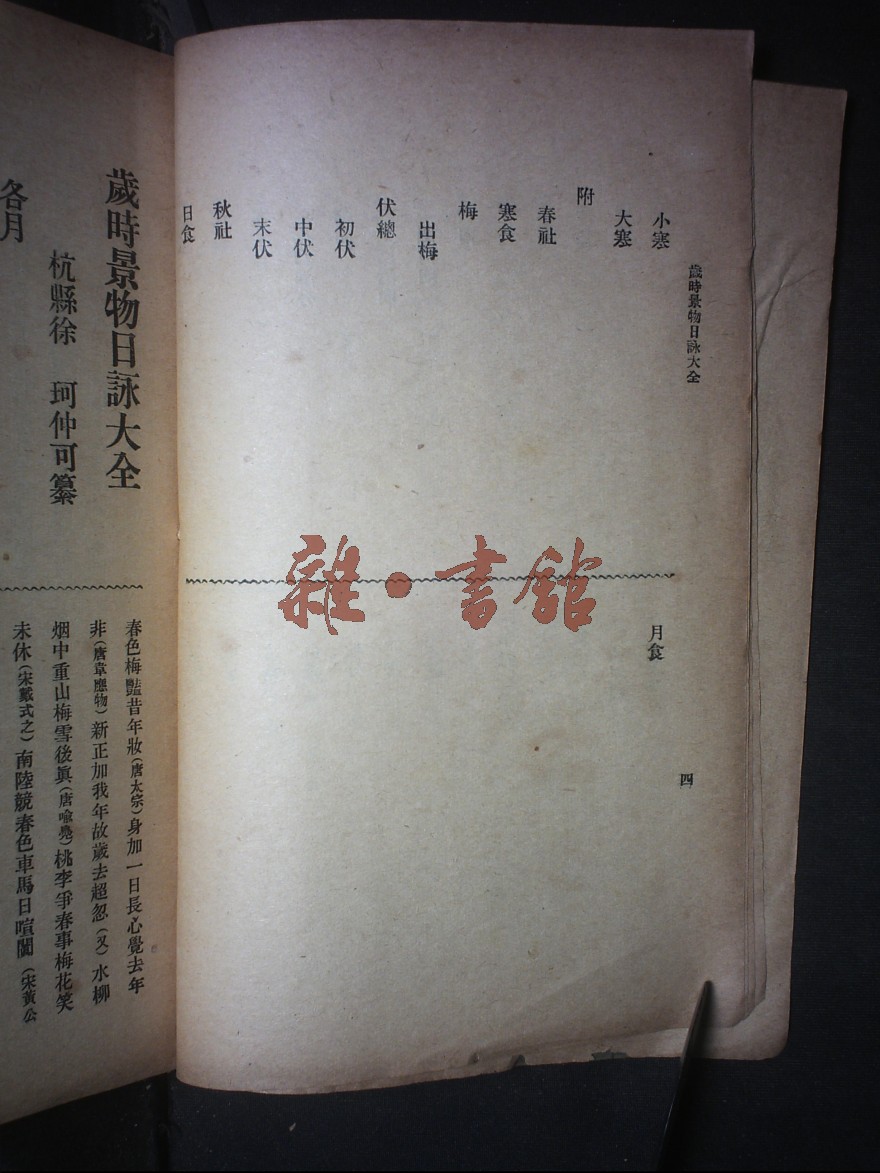 歲時景物日詠大全
四
小寒
大寒
附
春社
寒食
梅
出梅
伏總
初伏
中伏
末伏
秋社
日食
月食
歲時景物日詠大全
杭縣徐 珂仲可纂
各月
春色梅豔昔年妝(唐太宗)身加一日長心覺去年
非(唐韋應物)新正加我年故歲去超忽(又)水柳
烟中重山梅雪後眞(唐喻鳧)桃李爭春事梅花笑
未休(宋戴式之)南陸競春色車馬日喧闐(宋黃公
雜·書館